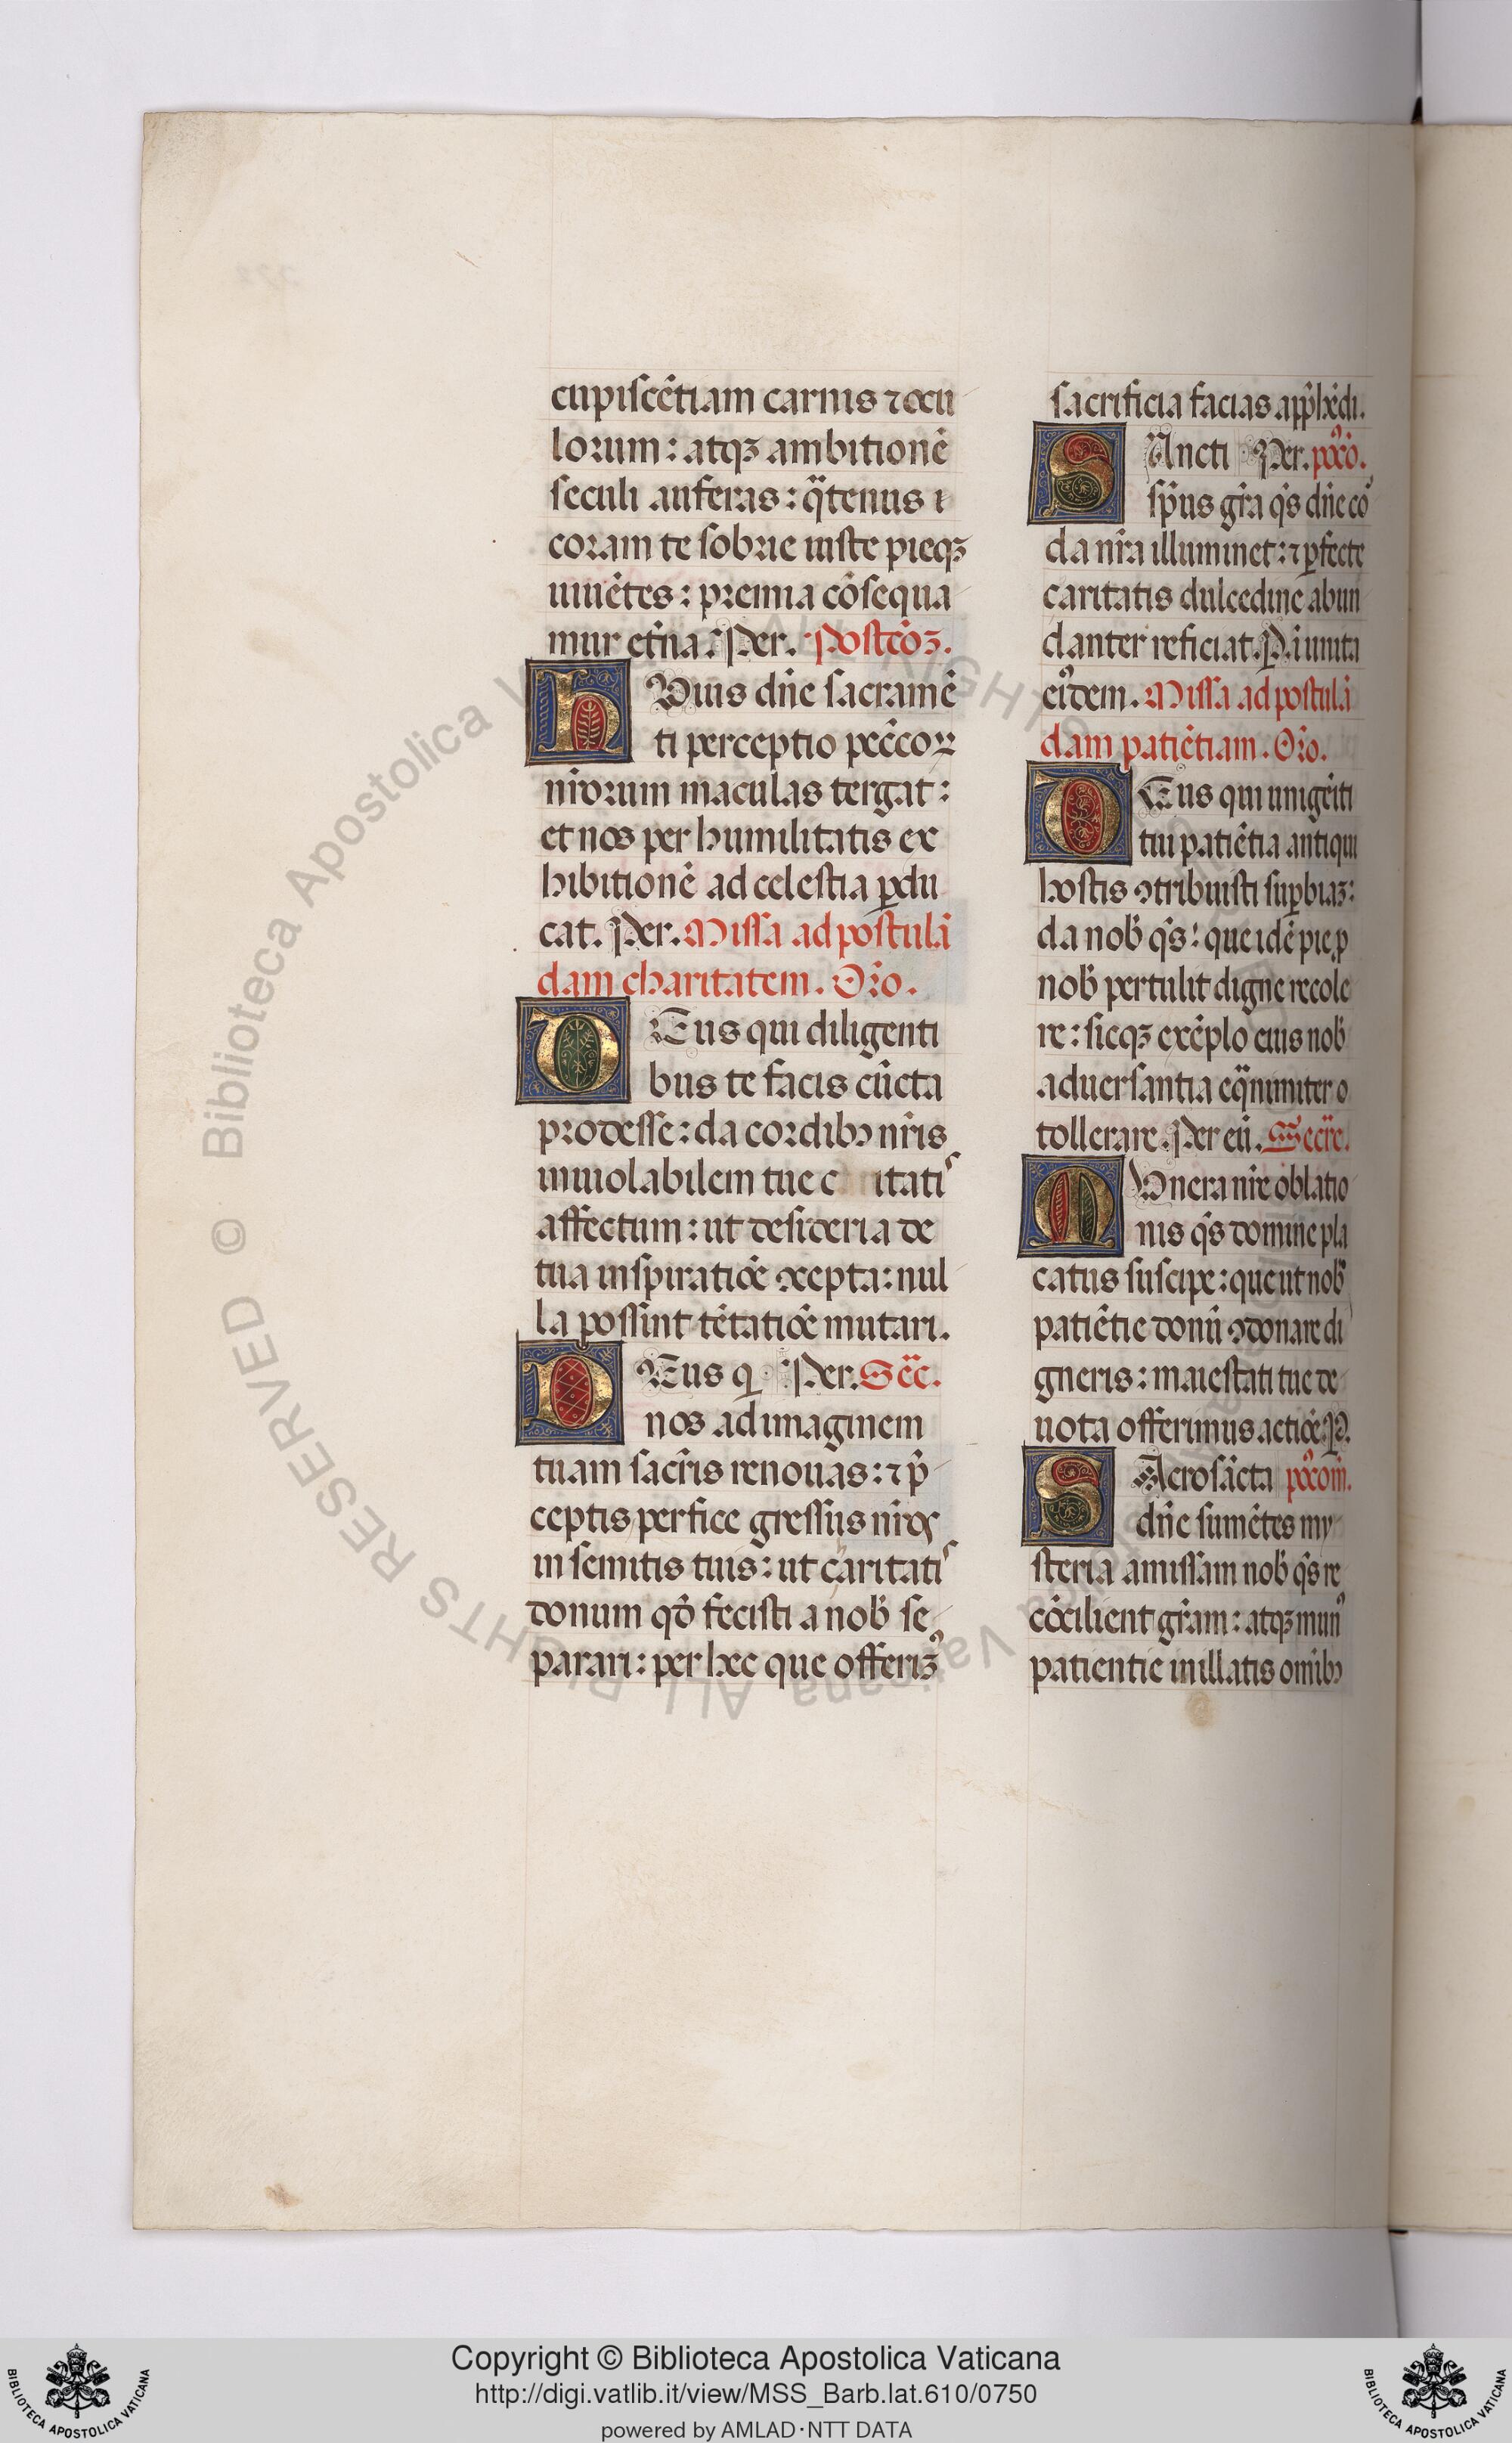 cupiscẽtiam carnis ⁊ ocu
lorum: atqꝫ ambitionẽ
seculi auferas: q̃tenus i
coram te sobrie iuste pieqꝫ
uiuẽtes: premia cõsequa
mur et̃na. Per. Postcõꝫ.
HUius dñe sacramẽ
ti perceptio pecc̃oꝝ
nr̃orum maculas tergat:
et nos per humilitatis ex
hibitionẽ ad celestia ꝑdu
cat. Per. Missa ad postulã
dam charitatem. Or̃o.
DEus qui diligenti
bus te facis cũcta
prodesse: da cordibꝰ nr̃is
inuiolabilem tue c itatis
affectum: ut desideria de
tua inspiratiõe ↄcepta: nul
la possint tẽtatiõe mutari.
DEus q Per. Sec̃.
nos ad imaginem
tuam sacr̃is renouas: ⁊ p̃
ceptis perfice gressus nr̃os
in semitis tuis: ut caritatis
donum qd̃ fecisti a nob̃ se
parari: per hec que offerimꝰ
sacrificia facias app̃hẽdi.
SAncti Per. pꝰcõ.
sp̃us gr̃a q̃s dñe cor
da nr̃a illuminet: ⁊ ꝑfecte
caritatis dulcedine abun
danter reficiat. P. i unita
eiꝰdem. Missa ad postulã
dam patiẽtiam. Or̃o.
DEus qui unigẽiti
tui patiẽtia antiqui
hostis ↄtribuisti suꝑbiaꝫ:
da nob̃ q̃s: que idẽ pie ꝓ
nob̃ pertulit digne recole
re: sicqꝫ exẽplo eius nob̃
aduersantia eq̃nimiter
tollerare. Per eũ. Secr̃e.
MUnera nr̃e oblatio
nis q̃s domine pla
catus suscipe: que ut nob̃
patiẽtie donũ ↄdonare di
gneris: maiestati tue de
uota offerimus actiõe. P.
SAcrosãcta pꝰcom̃.
dñe sumẽtes my
steria amissam nob̃ q̃s re
cõcilient gr̃am: atqꝫ munꝰ
patientie in illatis om̃ibꝰ
© Biblioteca Apostolica Vaticana ALL RIGHTS RESERVED
Copyright © Biblioteca Apostolica Vaticana
http://digi.vatlib.it/view/MSS_Barb.lat.610/0750
powered by AMLAD·NTT DATA
BIBLIOTECA APOSTOLICA VATICANA
BIBLIOTECA APOSTOLICA VATICANA